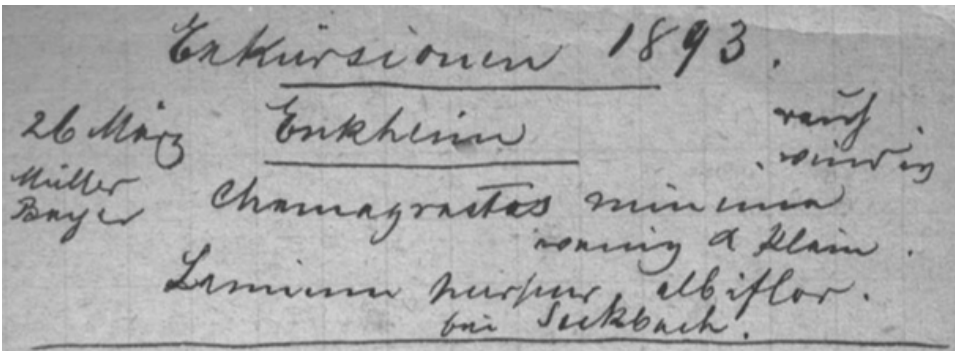 Exkursionen 1893.
26 März Enkheim rauh
windig
Müller
Bayer Chamagrostis minima
wenig & klein.
Lamium purpur. albiflor.
bei Seckbach.